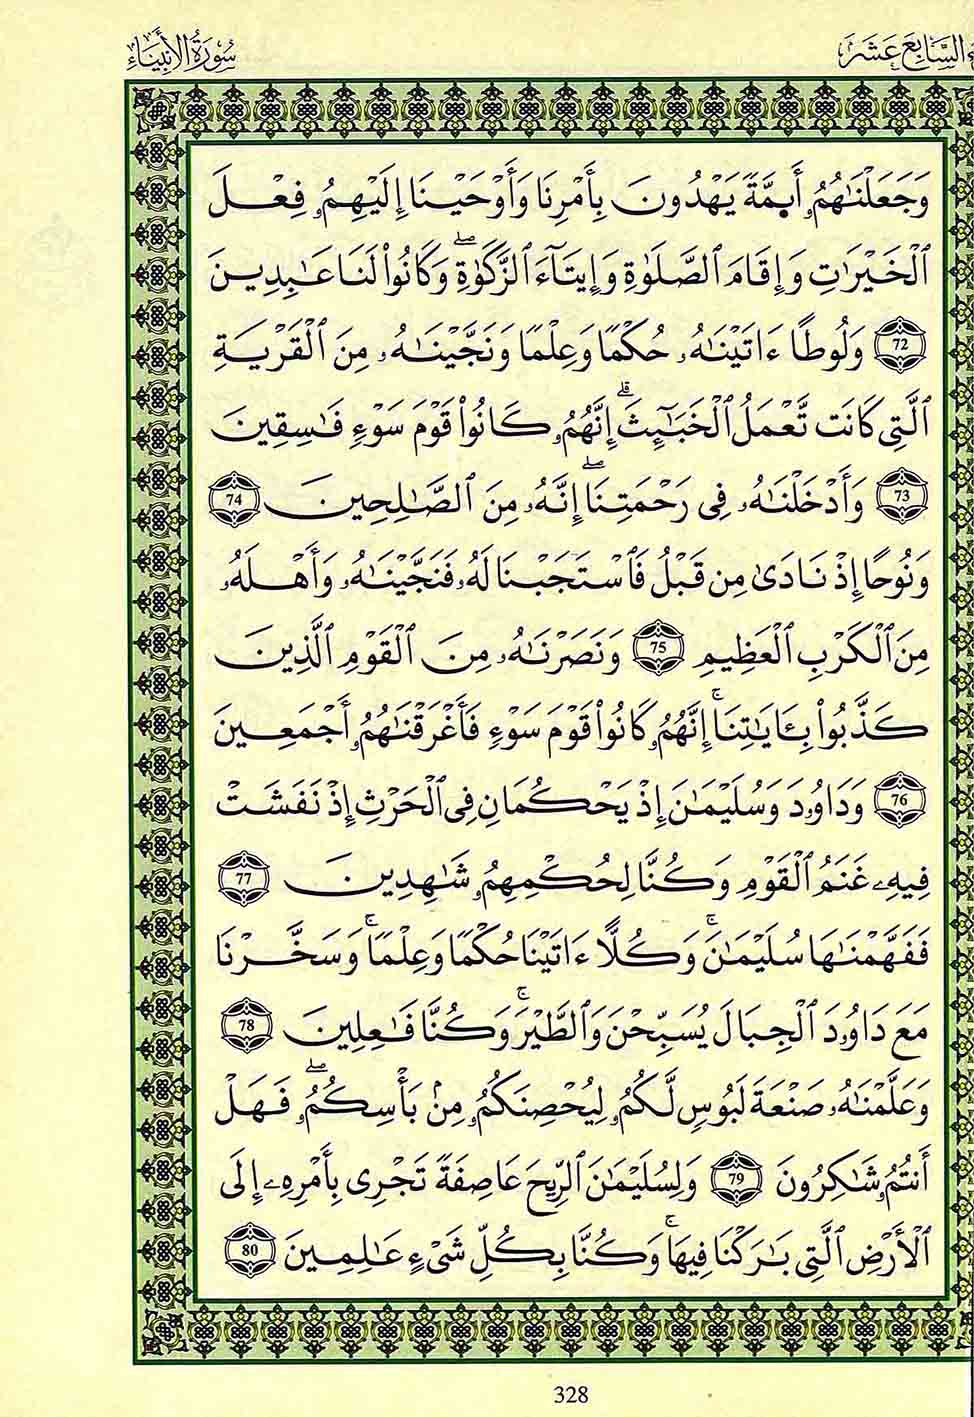 ٱلسَّابِعَ عَشَرَ
سُورَةُ الأَنبِيَاءِ
وَجَعَلْنَٰهُمُۥ أَىِٕمَّةً يَهْدُونَ بِأَمْرِنَا وَأَوْحَيْنَا إِلَيْهِمُۥ فِعْلَ
ٱلْخَيْرَٰتِ وَإِقَامَ ٱلصَّلَوٰةِ وَإِيتَآءَ ٱلزَّكَوٰةِۖ وَكَانُوا۟ لَنَا عَٰبِدِينَ
72 وَلُوطًا ءَاتَيْنَٰهُۥ حُكْمًا وَعِلْمًا وَنَجَّيْنَٰهُۥ مِنَ ٱلْقَرْيَةِ
ٱلَّتِى كَانَت تَّعْمَلُ ٱلْخَبَٰٓئِثَۗ إِنَّهُمُۥ كَانُوا۟ قَوْمَ سَوْءٍ فَٰسِقِينَ
73 وَأَدْخَلْنَٰهُۥ فِى رَحْمَتِنَاۖ إِنَّهُۥ مِنَ ٱلصَّٰلِحِينَ 74
وَنُوحًا إِذْ نَادَىٰ مِن قَبْلُ فَٱسْتَجَبْنَا لَهُۥ فَنَجَّيْنَٰهُۥ وَأَهْلَهُۥ
مِنَ ٱلْكَرْبِ ٱلْعَظِيمِ 75 وَنَصَرْنَٰهُۥ مِنَ ٱلْقَوْمِ ٱلَّذِينَ
كَذَّبُوا۟ بِـَٔايَٰتِنَاۚ إِنَّهُمُۥ كَانُوا۟ قَوْمَ سَوْءٍ فَأَغْرَقْنَٰهُمُۥ أَجْمَعِينَ
76 وَدَاوُۥدَ وَسُلَيْمَٰنَ إِذْ يَحْكُمَانِ فِى ٱلْحَرْثِ إِذْ نَفَشَتْ
فِيهِۦ غَنَمُ ٱلْقَوْمِ وَكُنَّا لِحُكْمِهِمُۥ شَٰهِدِينَ 77
فَفَهَّمْنَٰهَا سُلَيْمَٰنَۚ وَكُلًّا ءَاتَيْنَا حُكْمًا وَعِلْمًاۚ وَسَخَّرْنَا
مَعَ دَاوُۥدَ ٱلْجِبَالَ يُسَبِّحْنَ وَٱلطَّيْرَۚ وَكُنَّا فَٰعِلِينَ 78
وَعَلَّمْنَٰهُۥ صَنْعَةَ لَبُوسٍ لَّكُمُۥ لِيُحْصِنَكُمُۥ مِنۢ بَأْسِكُمُۥۖ فَهَلْ
أَنتُمُۥ شَٰكِرُونَ 79 وَلِسُلَيْمَٰنَ ٱلرِّيحَ عَاصِفَةً تَجْرِى بِأَمْرِهِۦ إِلَى
ٱلْأَرْضِ ٱلَّتِى بَٰرَكْنَا فِيهَاۚ وَكُنَّا بِكُلِّ شَىْءٍ عَٰلِمِينَ 80
328